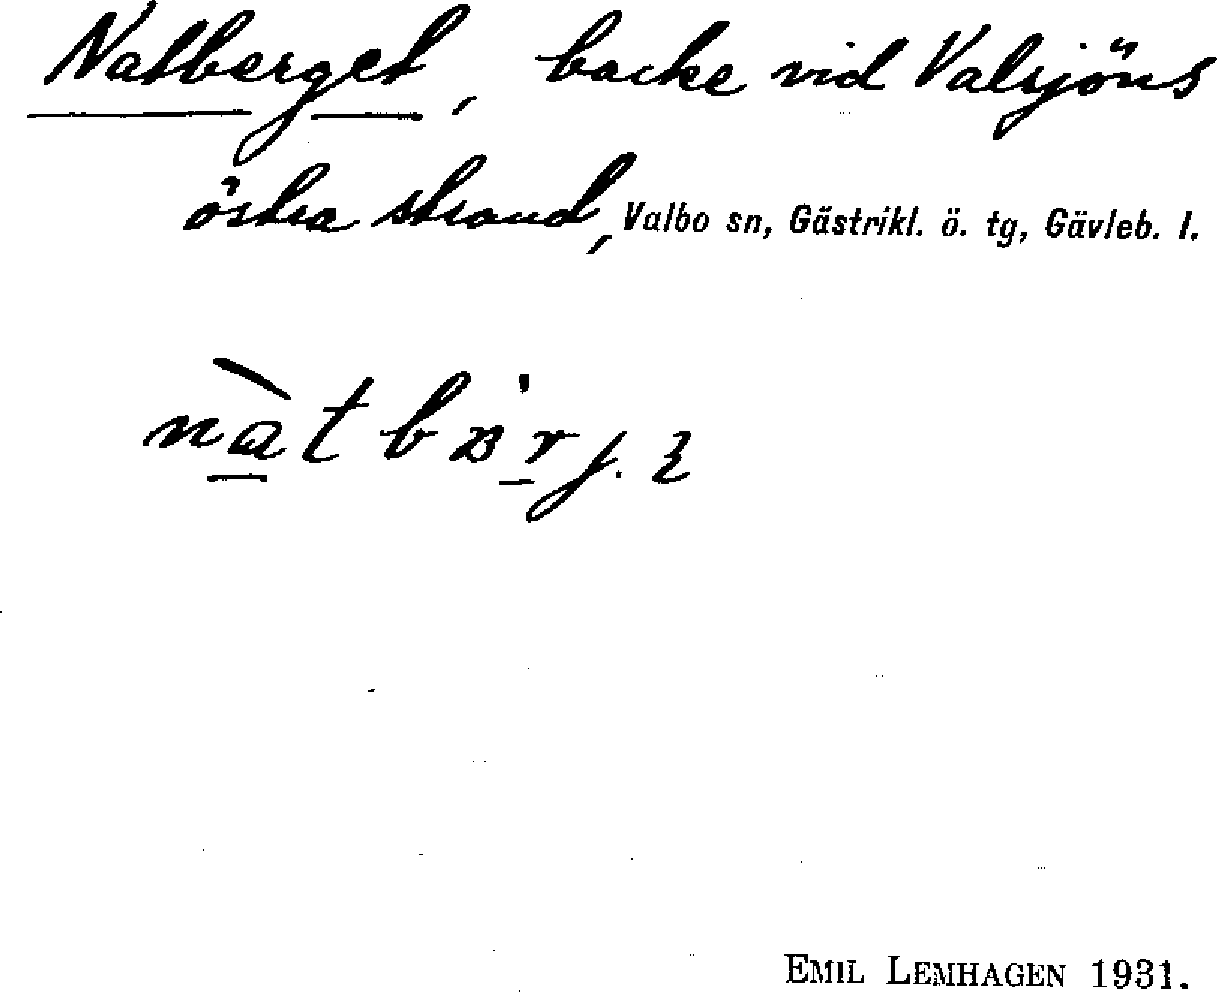 Natberget, backe vid Valsjöns
östra strand, Valbo sn, Gästrikl. ö. tg, Gävleb. l.
EMIL LEMHAGEN 1931.